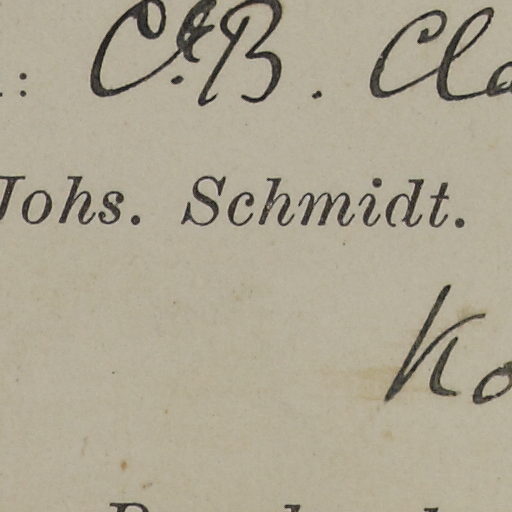 C. B. Cla
Johs. Schmidt.
Ko